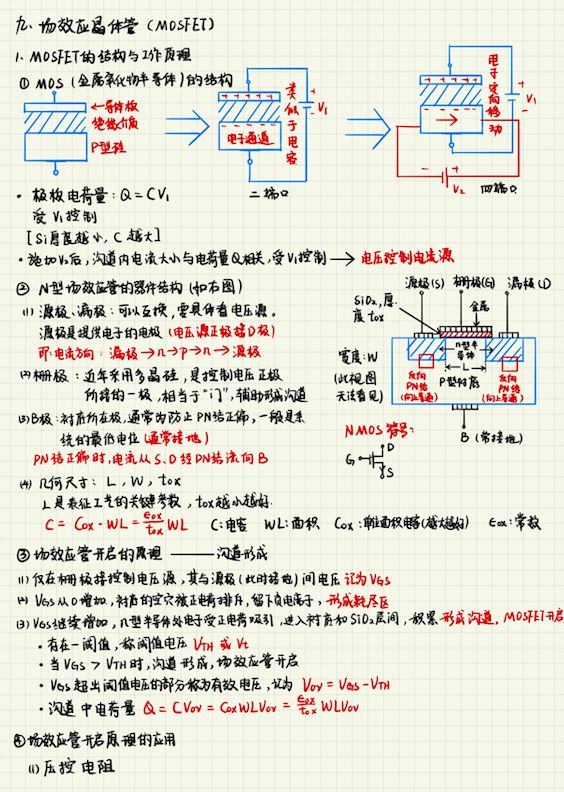 九、场效应晶体管（MOSFET）
1. MOSFET的结构与工作原理
① MOS（金属氧化物半导体）的结构
←导体板
绝缘介质
P型硅
++++++
电子通道
类似于电容
+
-
V1
二端口
++++++
→
电子定向移动
+
-
V1
- +
V2
四端口
· 极板电荷量：Q=CV1
受V1控制
[Si厚度越小，C越大]
· 施加V2后，沟道内电流大小与电荷量Q相关，受V1控制 → 电压控制电流源
② N型场效应管的器件结构（如右图）
(1) 源极、漏极：可以互换，需具体看电压源。
源极是提供电子的电极（电压源正极接D极）
即：电流方向：漏极→n→p→n→源极
(2) 栅极：近年采用多晶硅，是控制电压正极
所接的一极，相当于“门”，辅助形成沟道
(3) B极：衬底所在极，通常为防止PN结正偏，一般是系
统的最低电位（通常接地）
PN结正偏时，电流从S、D经PN结流向B
源极(S) 栅极(G) 漏极(D)
SiO2，厚度tox
金属
n型半导体
L
宽度：W
(此视图无法看见)
P型衬底
反向PN结
(向上导通)
反向PN结
(向上导通)
B（常接地）
NMOS符号：
G
D
S
(4) 几何尺寸：L，W，tox
L是表征工艺的关键参数，tox越小越好
C = Cox·WL = εox/tox WL C：电容 WL：面积 Cox：单位面积电容(越大越好) εox：常数
③ 场效应管开启的原理 —— 沟道形成
(1) 仅在栅极接控制电压源，其与源极（此时接地）间电压记为VGS
(2) VGS从0增加，衬底的空穴被正电荷排斥，留下负离子，形成耗尽区
(3) VGS继续增加，n型半导体处电子受正电荷吸引，进入衬底和SiO2层间，积累形成沟道，MOSFET开启
· 存在一阈值，称阈值电压 VTH 或 Vt
· 当VGS > VTH时，沟道形成，场效应管开启
· VGS超出阈值电压的部分称为有效电压，记为 VOV = VGS - VTH
· 沟道中电荷量 Q = CVOV = CoxWLVOV = εox/tox WLVOV
④ 场效应管开启原理的应用
(1) 压控电阻